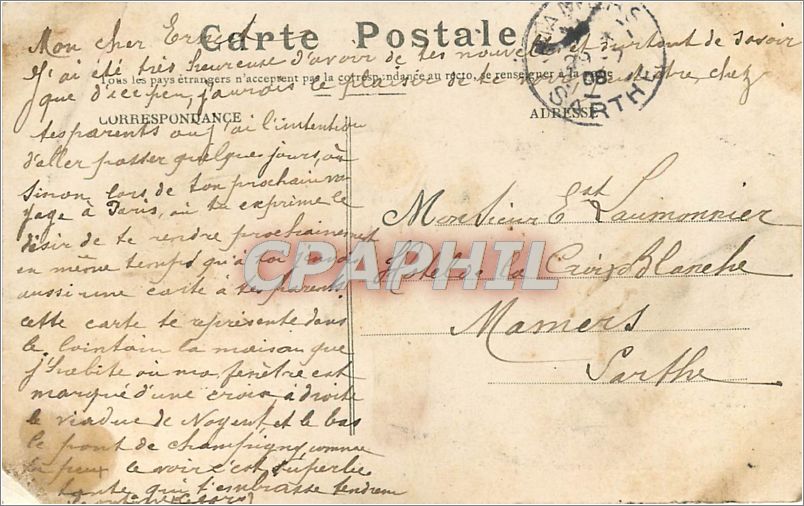 Carte Postale
Mon cher Ernest
J'ai été très heureuse d'avoir de tes nouvelles et surtout de savoir
Tous les pays étrangers n'acceptent pas la correspondance au recto, se renseigner à la
que d'ici peu, j'aurais le plaisir de te chez
CORRESPONDANCE
tes parents ou j'ai l'intention
d'aller passer quelques jours, ou
sinon lors de ton prochain vo
yage à Paris, où tu exprime le
désir de te rendre prochainement
en même temps qu'à toi
aussi une carte à tes parents
cette carte te représente dans
le lointain la maison que
j'habite où ma fenêtre est
marqué d'une croix à droite
le viaduc de Nogent et le bas
le pont de champigny, comme
tu peux le voir c'est superbe
tante qui t'embrasse tendrem
ADRESSE
Monsieur Est Laumonnier
Hotel de la Croix Blanche
Mamers
Sarthe
MAMERS
08
SARTHE
CPAPHIL